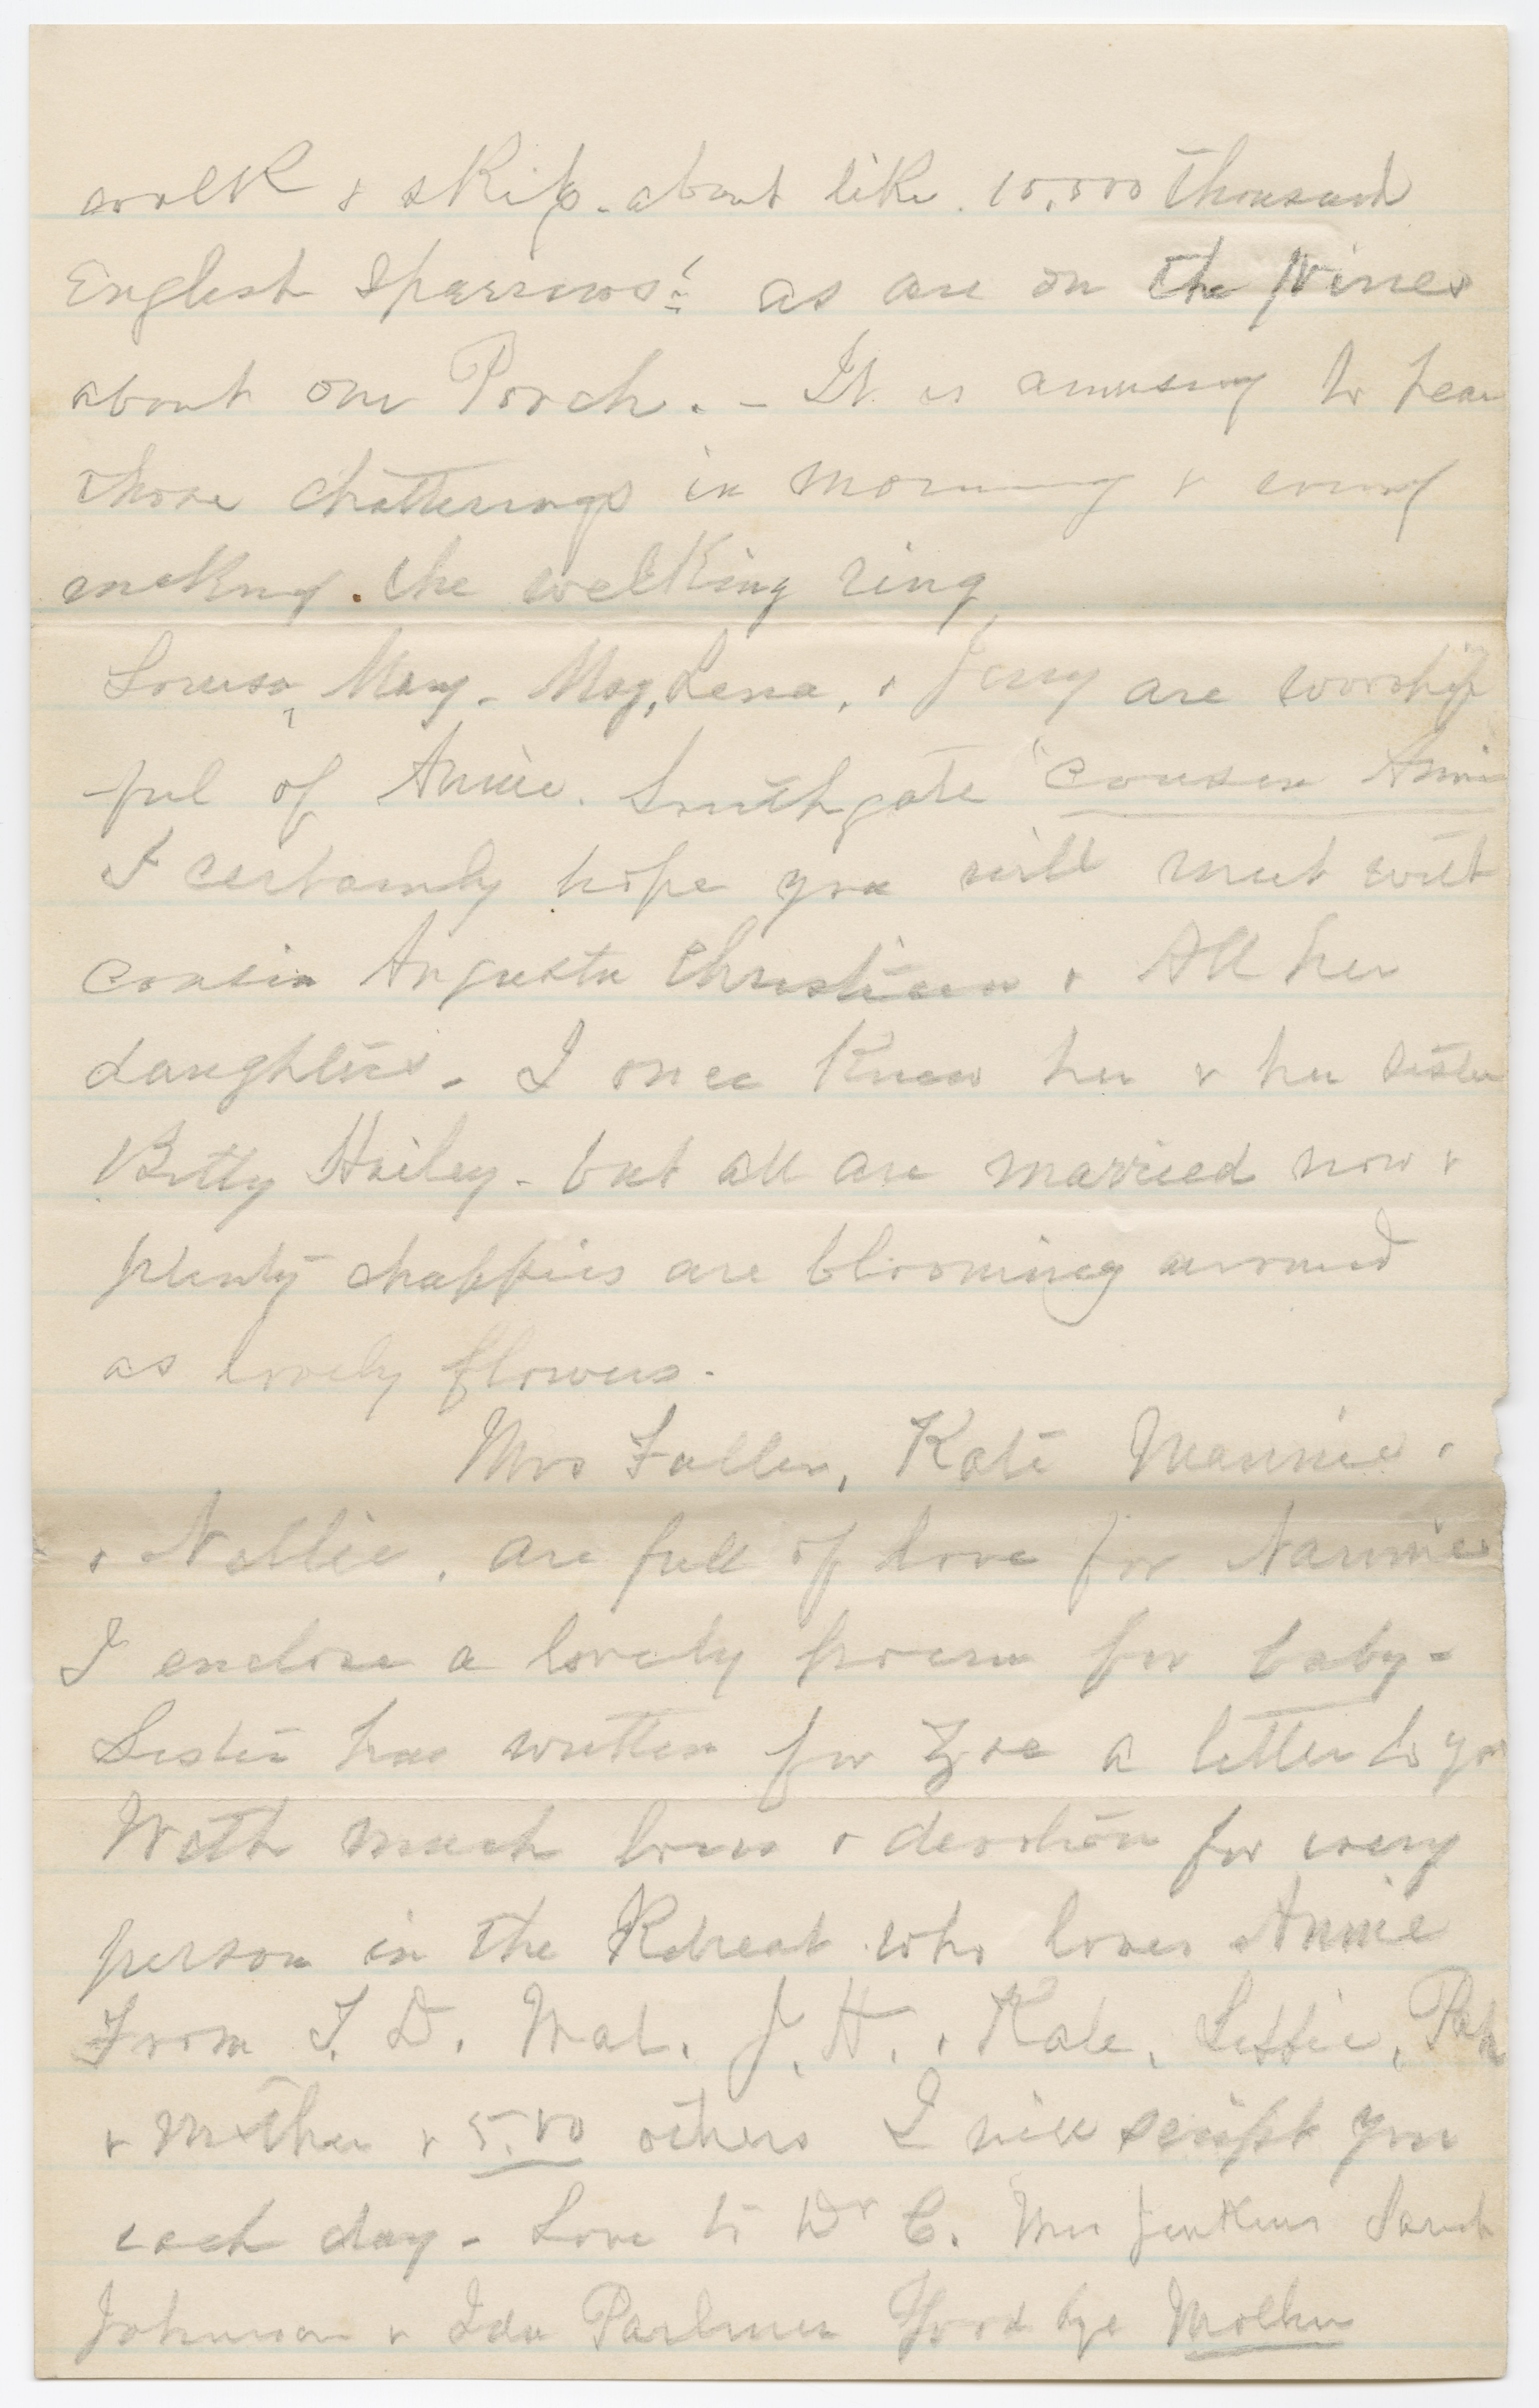 walk & skip about like 10,000 thousand
English Sparrows! as are on the Vines
about our Porch. - It is amusing to hear
those chatterings in morning & evening
making the welking ring
Louisa, Mary - Mag, Lena, & Jenny are worship
-ful of Annie. Southgate "cousin Annie
I certainly hope you will meet with
cousin Augusta Christian & All her
daughters - I once knew her & her sister
Betty Hailey - but all are married now &
plenty chappies are blooming around
as lovely flowers -
Mrs Fuller, Kate Mannie,
& Nellie, are full of love for Nannie
I enclose a lovely poem for baby -
Sister has written for Zoe a letter to you
With much love & devotion for every
person in the Retreat who loves Annie
From T. D. Wat. J. H. & Kate, Lessie, Pah
& Mother & 5.00 others I will script you
each day - Love to Dr C. Mrs Jenkins Sarah
Johnson & Ida Parlmer Good bye Mother